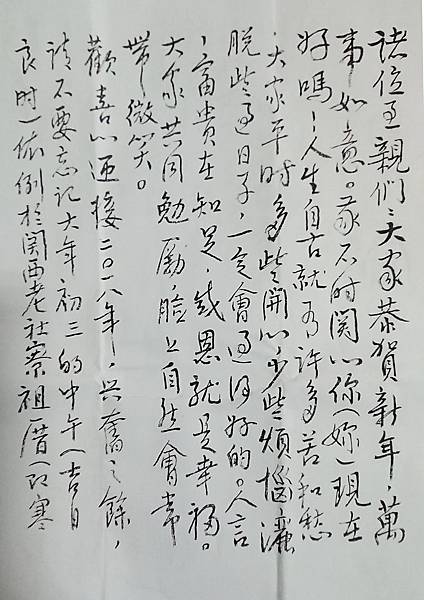 諸位至親們：大家恭賀新年，萬
事如意。我不时関心你（妳）現在
好嗎！人生自古就有許多苦和愁
，大家平时多些開心少些煩惱瀟
脱些過日子，一定會過得好的。人言
，富貴在知足，感恩就是幸福。
大家共同勉勵，臉上自然會常
帶微笑。
歡喜心迎接二〇一八年，兴奮之餘，
請不要忘記大年初三的中午（吉日
良时）依例於関西老社寮祖厝（